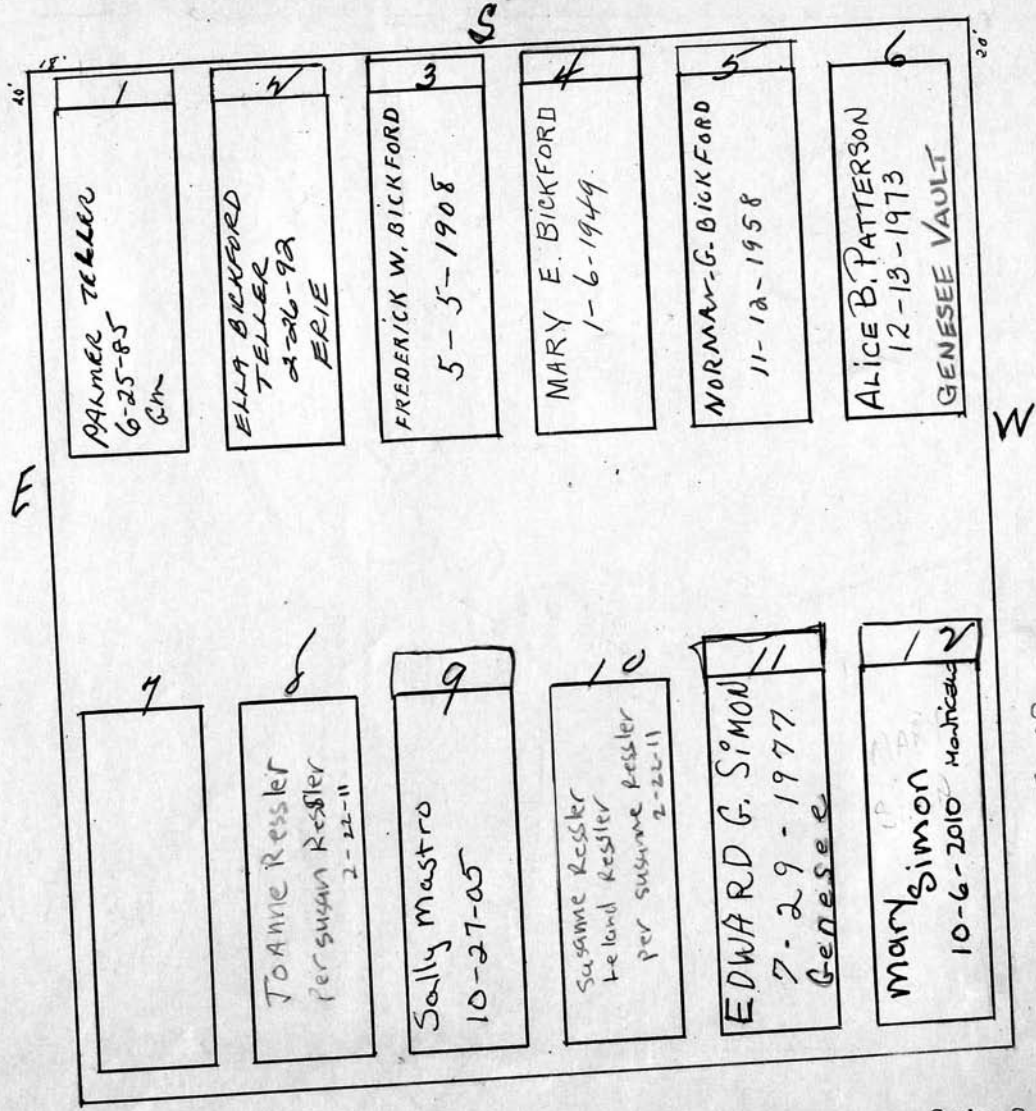 S
E
W
20'
18'
20'
1
PALMER TELLER
6-25-85
Gm
2
ELLA BICKFORD
TELLER
2-26-92
ERIE
3
FREDERICK W. BICKFORD
5-5-1908
4
MARY E. BICKFORD
1-6-1949
5
NORMAN G. BICKFORD
11-12-1958
6
ALICE B. PATTERSON
12-13-1973
GENESEE VAULT
7
8
JOANNE Ressler
Per susan Ressler
2-22-11
9
Sally Mastro
10-27-05
10
Susanne Ressler
Leland Ressler
per susanne Ressler
2-22-11
11
EDWARD G. SIMON
7-29-1977
Genesee
12
mary Simon
10-6-2010